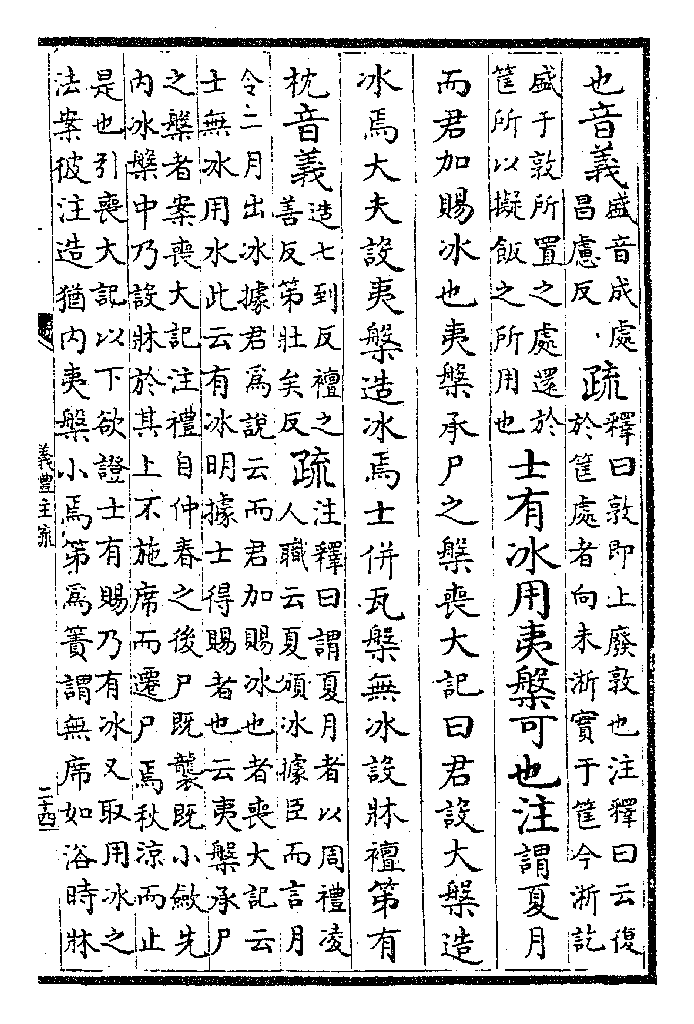 也音義盛音成處昌慮反疏釋曰敦即上廢敦也注釋曰云復於筐處者向未淅實于筐今淅訖
盛于敦所置之處還於筐所以擬飯之所用也士有冰用夷槃可也注謂夏月
而君加賜冰也夷槃承尸之槃喪大記曰君設大槃造
冰焉大夫設夷槃造冰焉士併瓦槃無冰設牀襢第有
枕音義造七到反襢之善反第壯矣反疏注釋曰謂夏月者以周禮凌人職云夏頒冰據臣而言月
令二月出冰據君爲說云而君加賜冰也者喪大記云
士無冰用水此云有冰明據士得賜者也云夷槃承尸
之槃者案喪大記注禮自仲春之後尸既襲既小斂先
內冰槃中乃設牀於其上不施席而遷尸焉秋涼而止
是也引喪大記以下欲證士有賜乃有冰又取用冰之
法案彼注造猶內夷槃小焉第爲簀謂無席如浴時牀
儀禮注疏
二十四